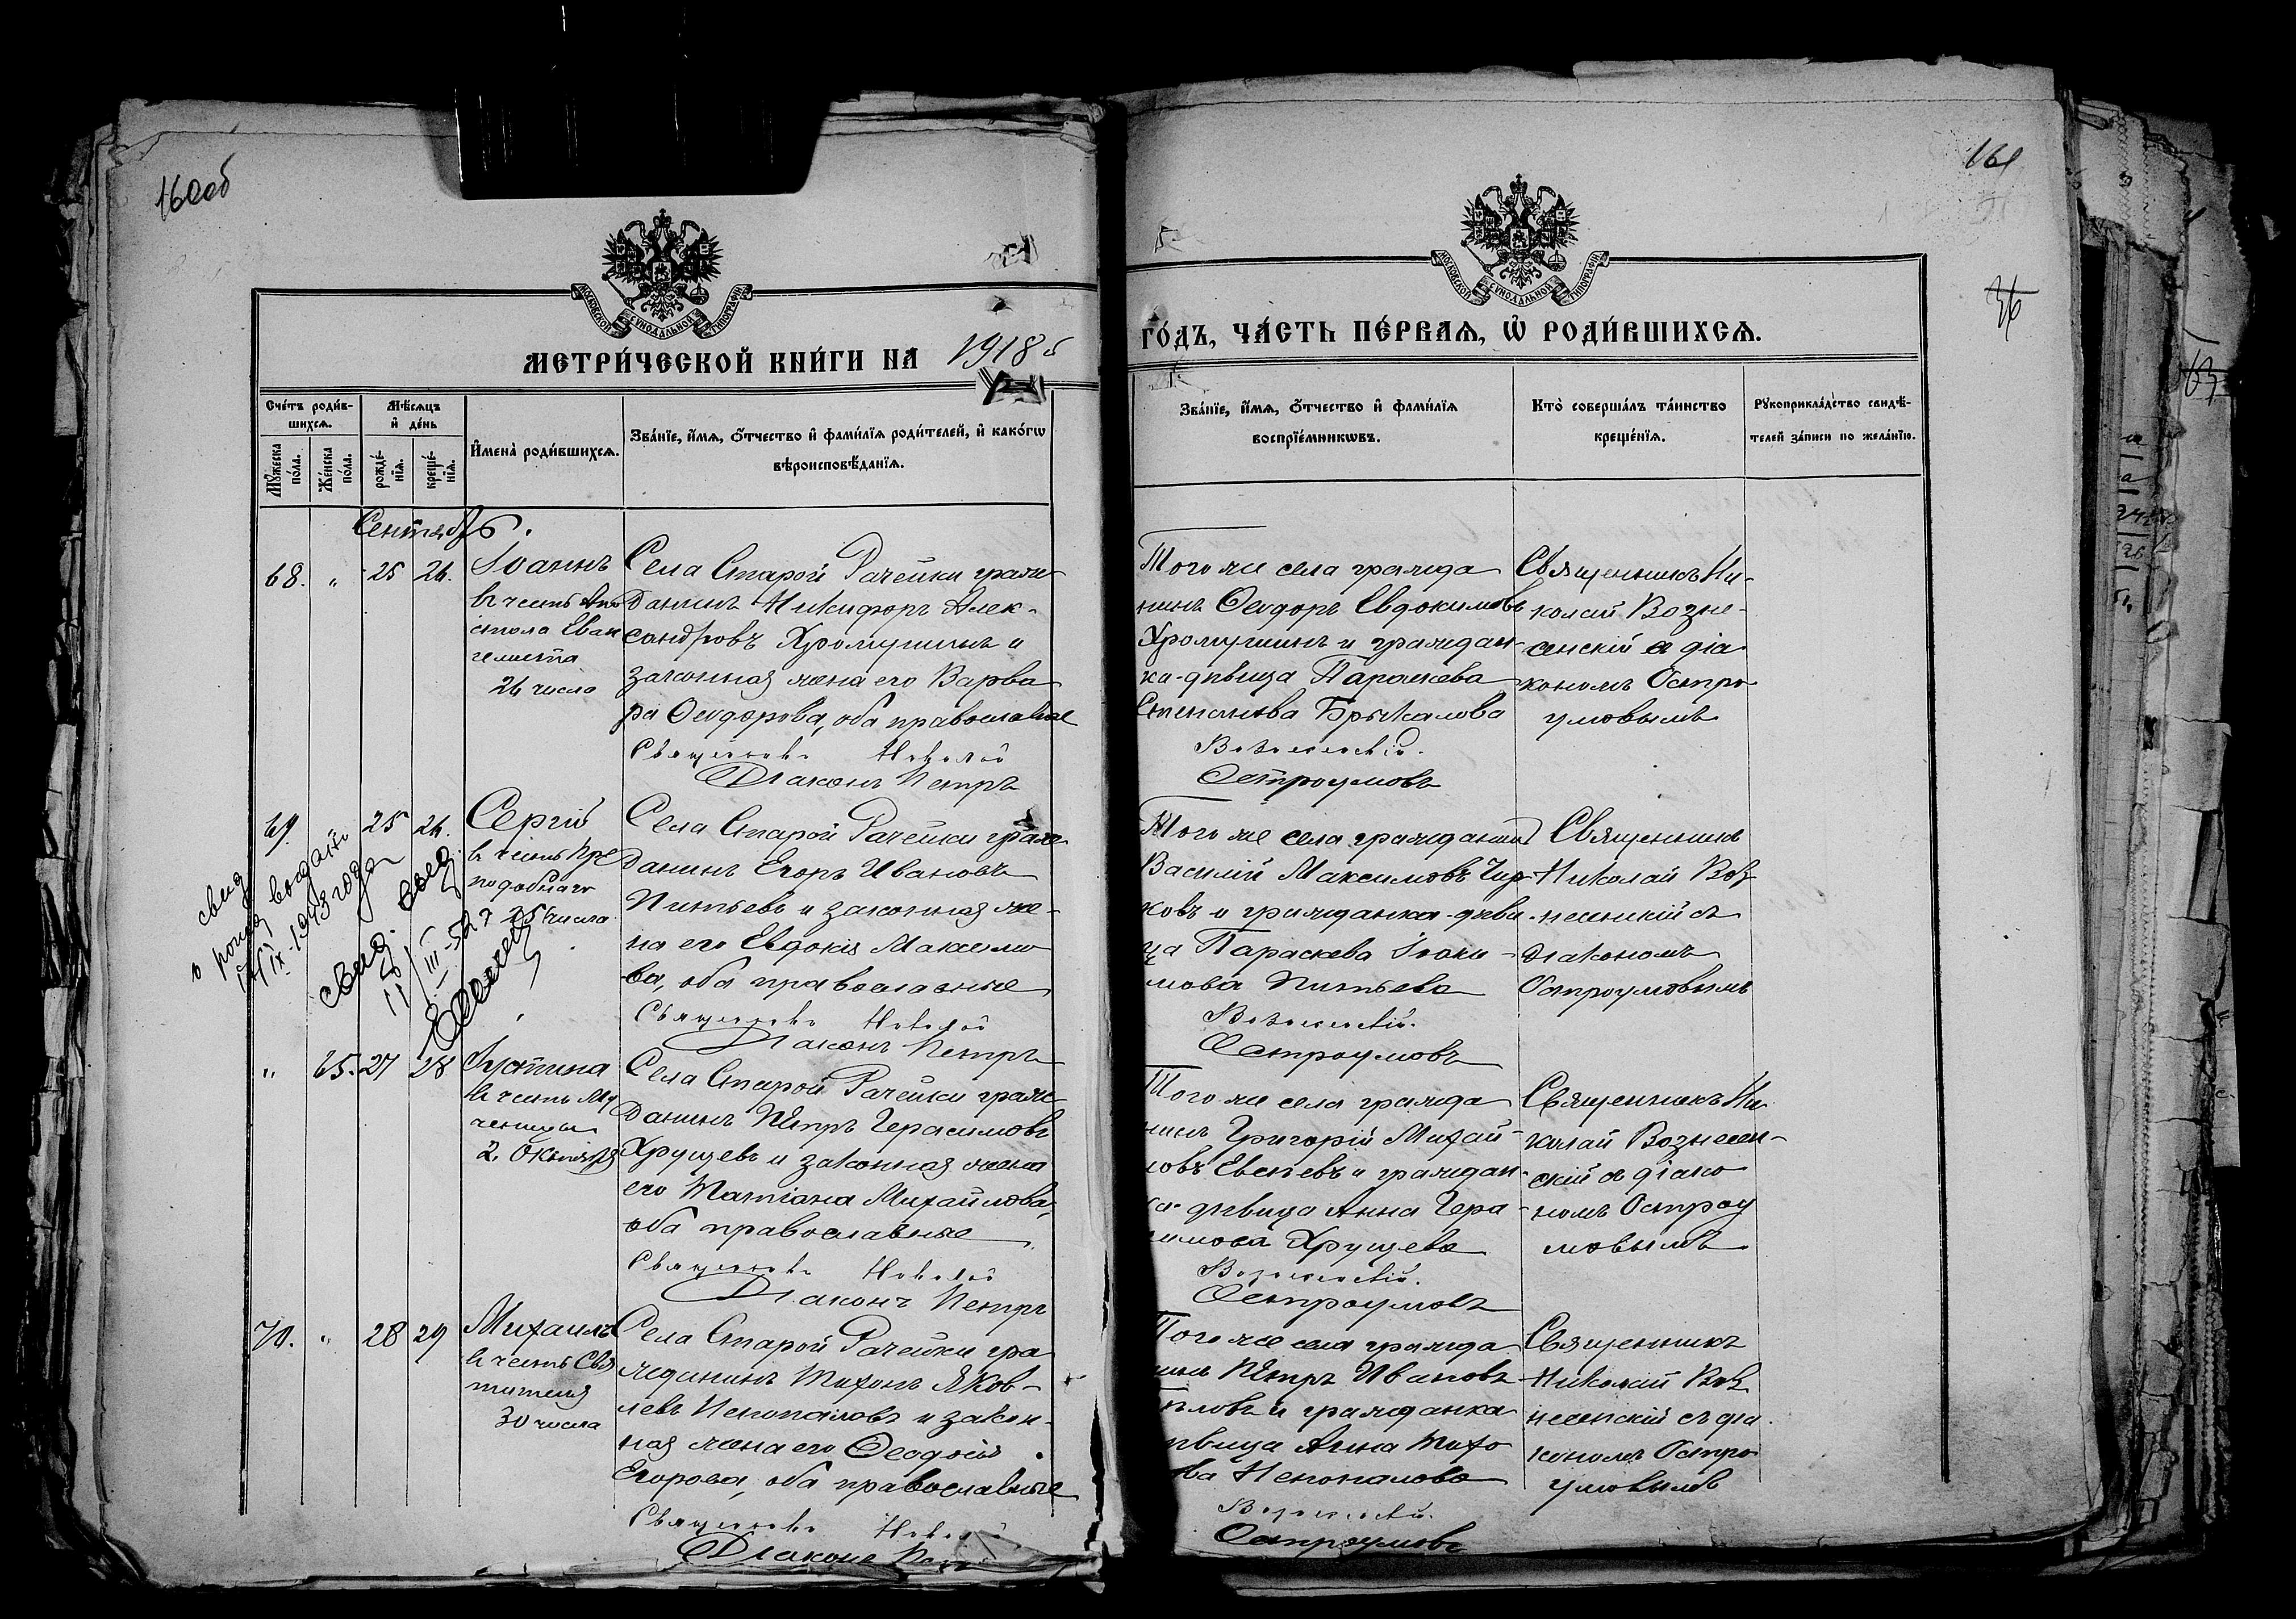 160об
161
36
63
МОСКОВСКОЙ СУНОДАЛЬНОЙ ТИПОГРАФІИ
МОСКОВСКОЙ СУНОДАЛЬНОЙ ТИПОГРАФІИ
МЕТРИ́ЧЕСКОЙ КНИ́ГИ НА 1918
ГО́ДЪ, ЧА́СТЬ ПЕ́РВАѦ, Ѡ҆ РОДИ́ВШИХСѦ.
Сче́тъ роди́в-
шихсѧ.
Мѣ́сѧцъ
и҆ де́нь
Мꙋ́жеска
по́ла.
Же́нска
по́ла.
рожде́-
нїѧ.
креще́-
нїѧ.
И҆мена̀ роди́вшихсѧ.
Зва́нїе, и҆́мѧ, ѻ҆́тчество и҆ фами́лїѧ роди́телей, и҆ како́гѡ
вѣроисповѣ́данїѧ.
Зва́нїе, и҆́мѧ, ѻ҆́тчество и҆ фами́лїѧ
воспрїе́мникѡвъ.
Кто̀ соверша́лъ та́инство
креще́нїѧ.
Рꙋкоприкла́дство свидѣ́-
телей за́писи по жела́нїю.
Сентябрь.
68.
"
25
26.
Іоаннъ
въ честь Апо
стола Еван
гелиста
26 числа
Села Старой Рачейки граж
данинъ Никифоръ Алек-
сандровъ Хромушинъ и
законная жена его Варва
ра Ѳеодорова, оба православные
Священникъ Николай
Діаконъ Петръ
Того же села гражда
нинъ Ѳеодоръ Евдокимовъ
Хромушинъ и граждан-
ка-дѣвица Параскева
Степанова Брыкалова
Вознесенскій.
Остроумовъ
Священникъ Ни-
колай Возне-
сенскій съ діа
кономъ Остро
умовымъ
69.
25
26.
Сергій
въ честь Пре
подобнаго
25 числа
Села Старой Рачейки граж
данинъ Егоръ Ивановъ
Питьевъ и законная же-
на его Евдокія Максимо
ва, оба православные
Священникъ Николай
Діаконъ Петръ
Того же села гражданинъ
Василій Максимовъ Чир
ковъ и гражданка-дѣви
ца Параскева Іоаки-
мова Питьева
Вознесенскій.
Остроумовъ
Священникъ
Николай Воз
несенскій съ
діакономъ
Остроумовымъ
свид
о рожд выдано
IX-1943 года
свид. выд.
"
65.
27
28
Іустина
въ честь Му
ченицы
2. Октября
Села Старой Рачейки граж-
данинъ Петръ Герасимовъ
Хрущевъ и законная жена
его Татіана Михайлова,
оба православные
Священникъ Николай
Діаконъ Петръ
Того же села гражда
нинъ Григорій Михай
ловъ Евсѣевъ и граждан-
ка-дѣвица Анна Гера
симова Хрущева
Вознесенскій.
Остроумовъ
Священникъ Ни
колай Вознесен-
скій съ діако
номъ Остроу
мовымъ
70.
"
28
29
Михаилъ
въ честь Свя
тителя
30 числа
Села Старой Рачейки гра
жданинъ Тихонъ Яков-
левъ Непопаловъ и закон-
ная жена его Ѳеодосія
Егорова, оба православные
Священникъ
Діаконъ
Того же села гражда
нинъ Петръ Ивановъ
ловъ и гражданка
дѣвица Анна Тихо
ва Непопалова
Вознесенскій.
Остроумовъ
Священникъ
Николай Воз
несенскій съ діа
кономъ Остро
умовымъ